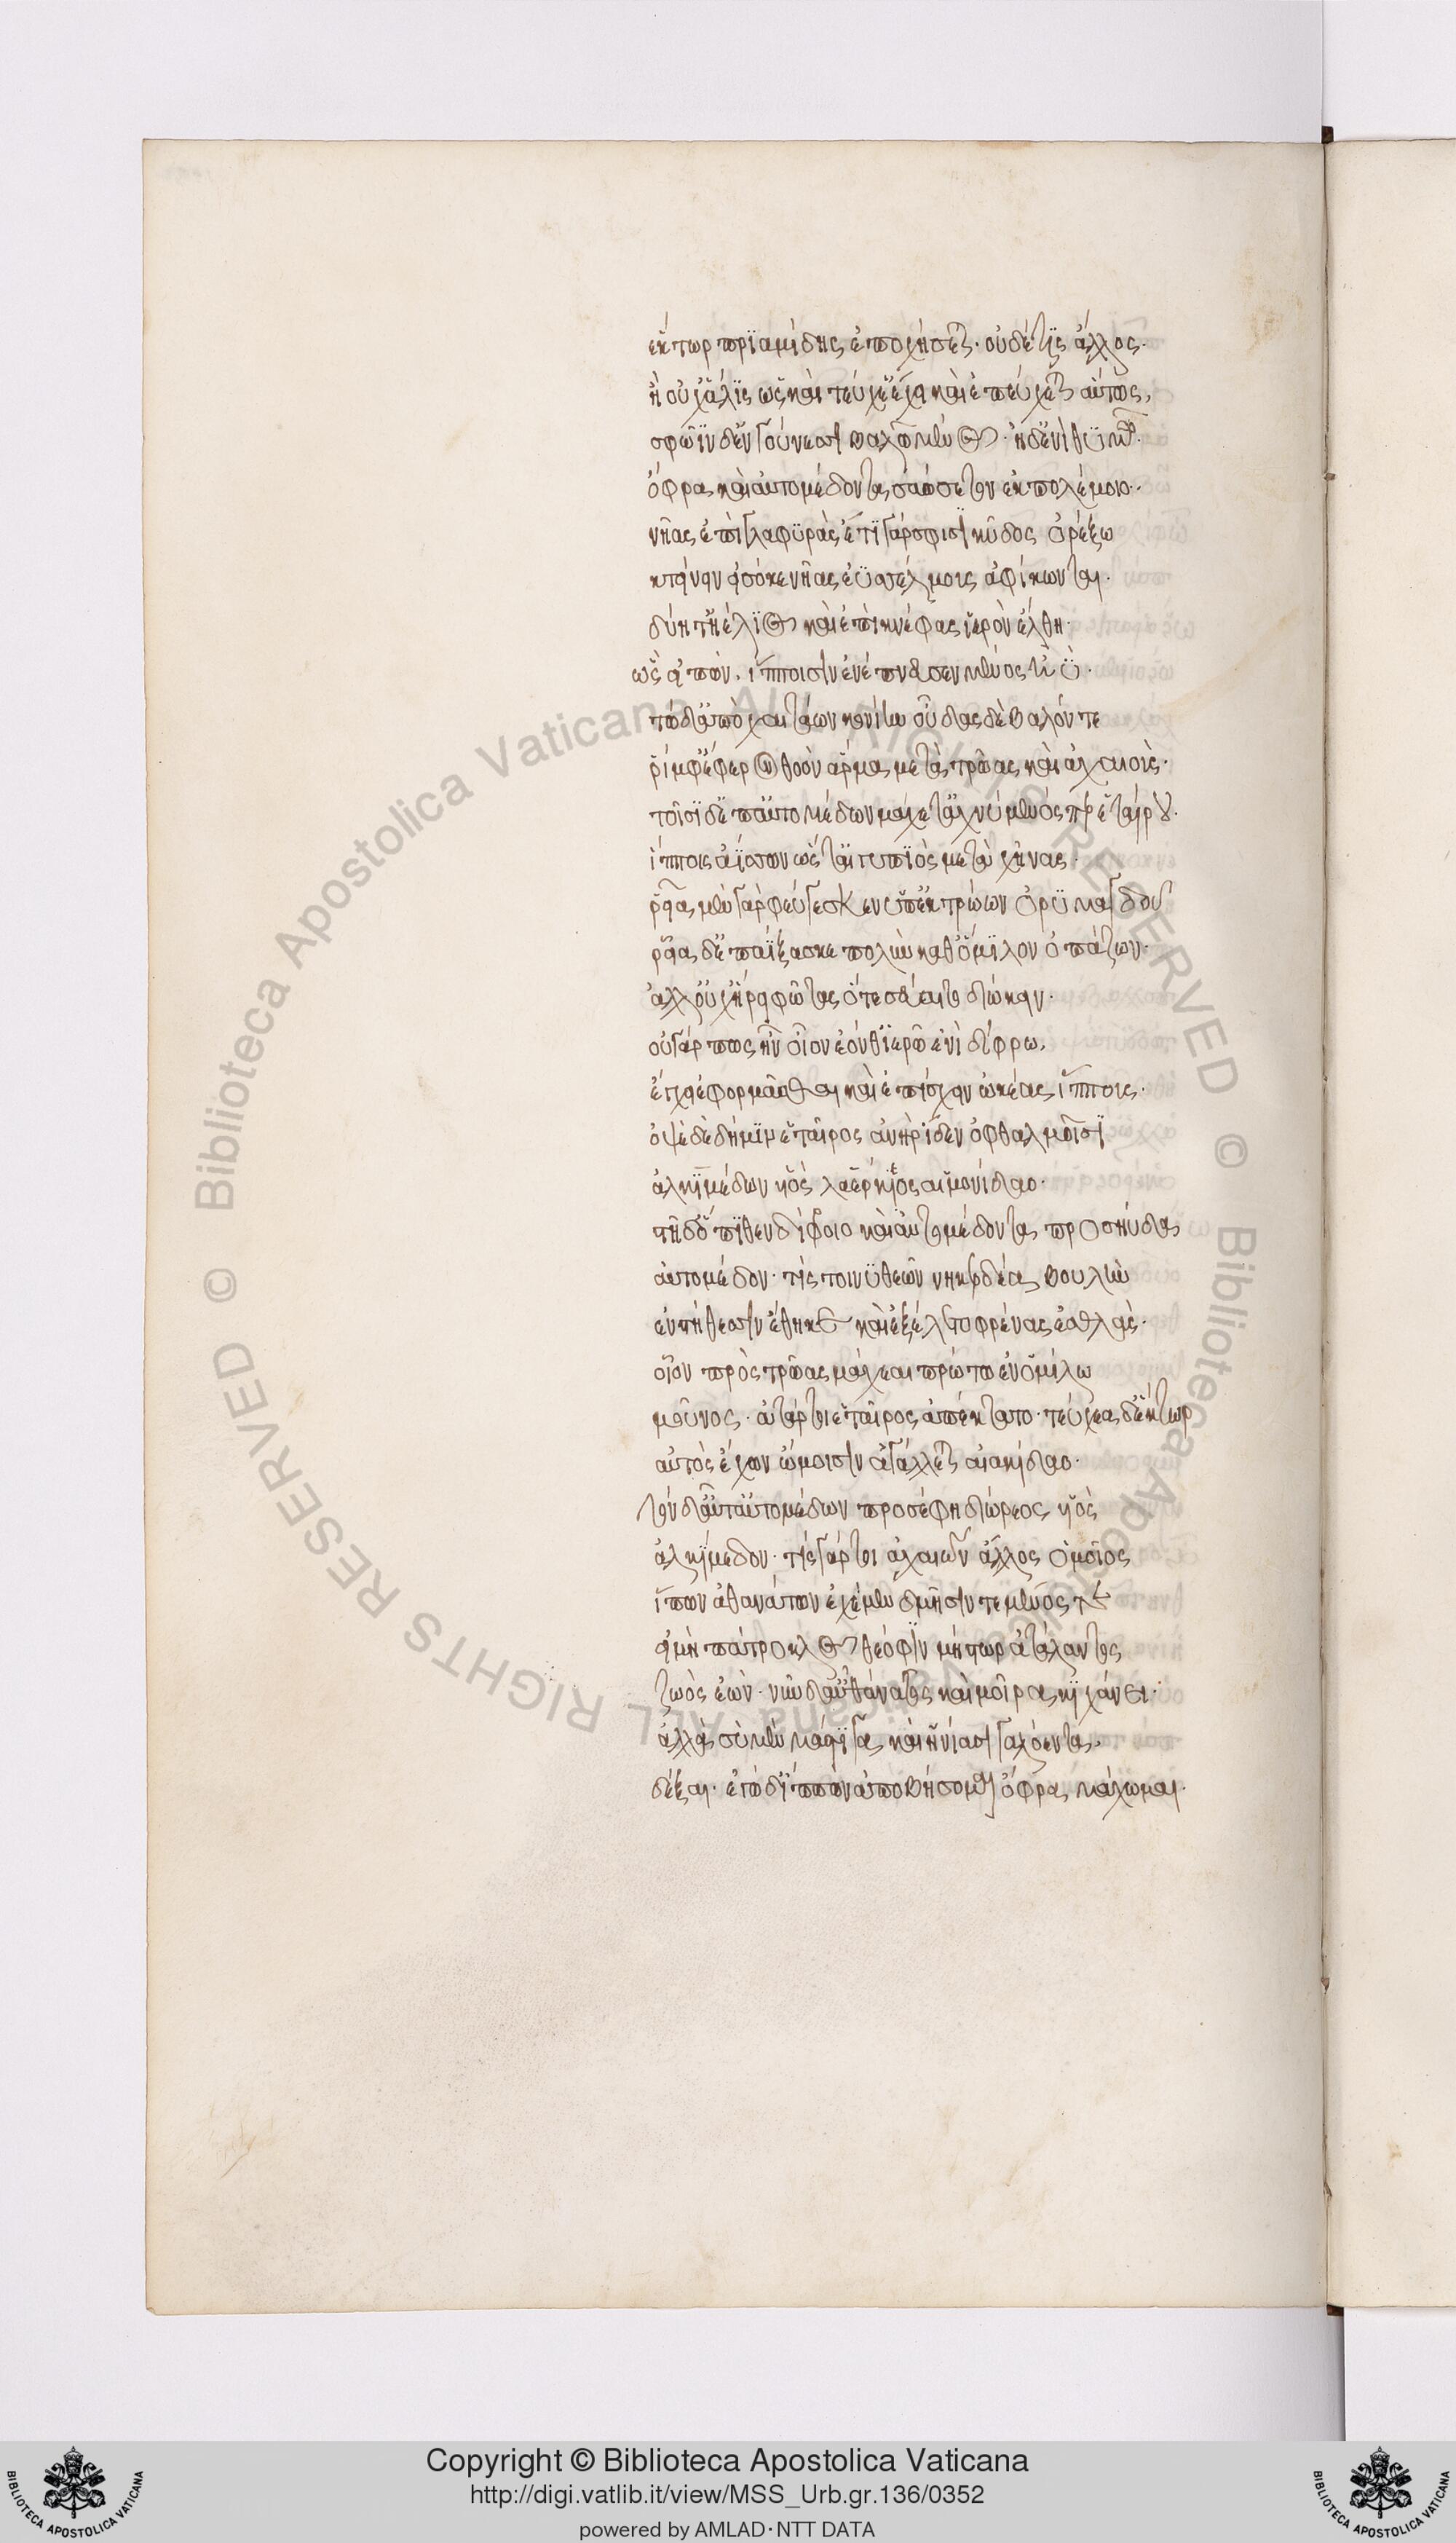 ἕκτωρ πριαμίδης ἐποχήσεται· οὐδέ τις ἄλλος·
ἢ οὐχ ἅλις ὡς καὶ τεύχε' ἔχει καὶ ἐπεύχεται αὕτως,
σφῶϊν δ' ἐν γούνεσσι βαλῶ μένος· ἠδ' ἐνὶ θυμῷ·
ὄφρα καὶ αὐτομέδοντα σαώσετον ἐκ πολέμοιο·
νῆας ἐπὶ γλαφυράς· ἔτι γάρ σφισι κῦδος ὀρέξω
κτείνειν εἰσόκε νῆας ἐϋσσέλμους ἀφίκωνται·
δύη τ' ἠέλιος καὶ ἐπὶ κνέφας ἱερὸν ἔλθη·
ὣς εἰπὼν, ἵπποισιν ἐνέπνευσεν μένος ἠΰ·
τὼ δ' ἀπὸ χαιτάων κονίην οὖδας δὲ βαλόντε
ῥίμφ' ἔφερον θοὸν ἅρμα μετὰ τρῶας καὶ ἀχαιούς·
τοῖσι δ' ἐπ' αὐτομέδων μάχετ' ἀχνύμενός περ ἑταίρου·
ἵπποις ἀΐσσων ὥς τ' αἰγυπιὸς μετὰ χῆνας·
ῥεῖα μὲν γὰρ φεύγεσκεν ὑπ' ἐκ τρώων ὀρυμαγδοῦ
ῥεῖα δ' ἐπαΐξασκε πολὺν καθ' ὅμιλον ὀπάζων·
ἀλλ' οὐχ ἥρει φῶτας ὅτε σεύαιτο διώκειν·
οὐ γάρ πως ἦν οἶον ἐόνθ' ἱερῷ ἐνὶ δίφρω,
ἔγχει ἐφορμᾶσθαι καὶ ἐπίσχειν ὠκέας ἵππους·
ὀψὲ δὲ δή μιν ἑταῖρος ἀνὴρ ἴδεν ὀφθαλμοῖσι
ἀλκιμέδων υἱὸς λαέρκηος αἱμονίδαο·
στῆ δ' ὄπιθεν δίφροιο καὶ αὐτομέδοντα προσηύδα
αὐτόμεδον· τίς τοι νυ θεῶν νηκερδέα βουλὴν
ἐν στήθεσσιν ἔθηκε καὶ ἐξέλετο φρένας ἐσθλάς·
οἷον πρὸς τρῶας μάχεαι πρώτω ἐν ὁμίλω
μοῦνος· ἀτάρ τοι ἑταῖρος ἀπέκτατο· τεύχεα δ' ἕκτωρ
αὐτὸς ἔχων ὤμοισιν ἀγάλλεται αἰακίδαο·
τὸν δ' αὖτ' αὐτομέδων προσέφη διώρεος υἱὸς
ἀλκίμεδον· τίς γάρ τοι ἀχαιῶν ἄλλος ὁμοῖος
ἵππων ἀθανάτων ἐχέμεν δμῆσίν τε μένος τε
εἰ μὴ πάτροκλος θεόφιν μήστωρ ἀτάλαντος
ζωὸς ἐών· νῦν δ' αὖ θάνατος καὶ μοῖρα κιχάνει·
ἀλλὰ σὺ μὲν μάστιγα καὶ ἡνία σιγαλόεντα,
δέξαι· ἐγὼ δ' ἵππων ἀποβήσομαι ὄφρα μάχωμαι·
Copyright © Biblioteca Apostolica Vaticana
http://digi.vatlib.it/view/MSS_Urb.gr.136/0352
powered by AMLAD·NTT DATA